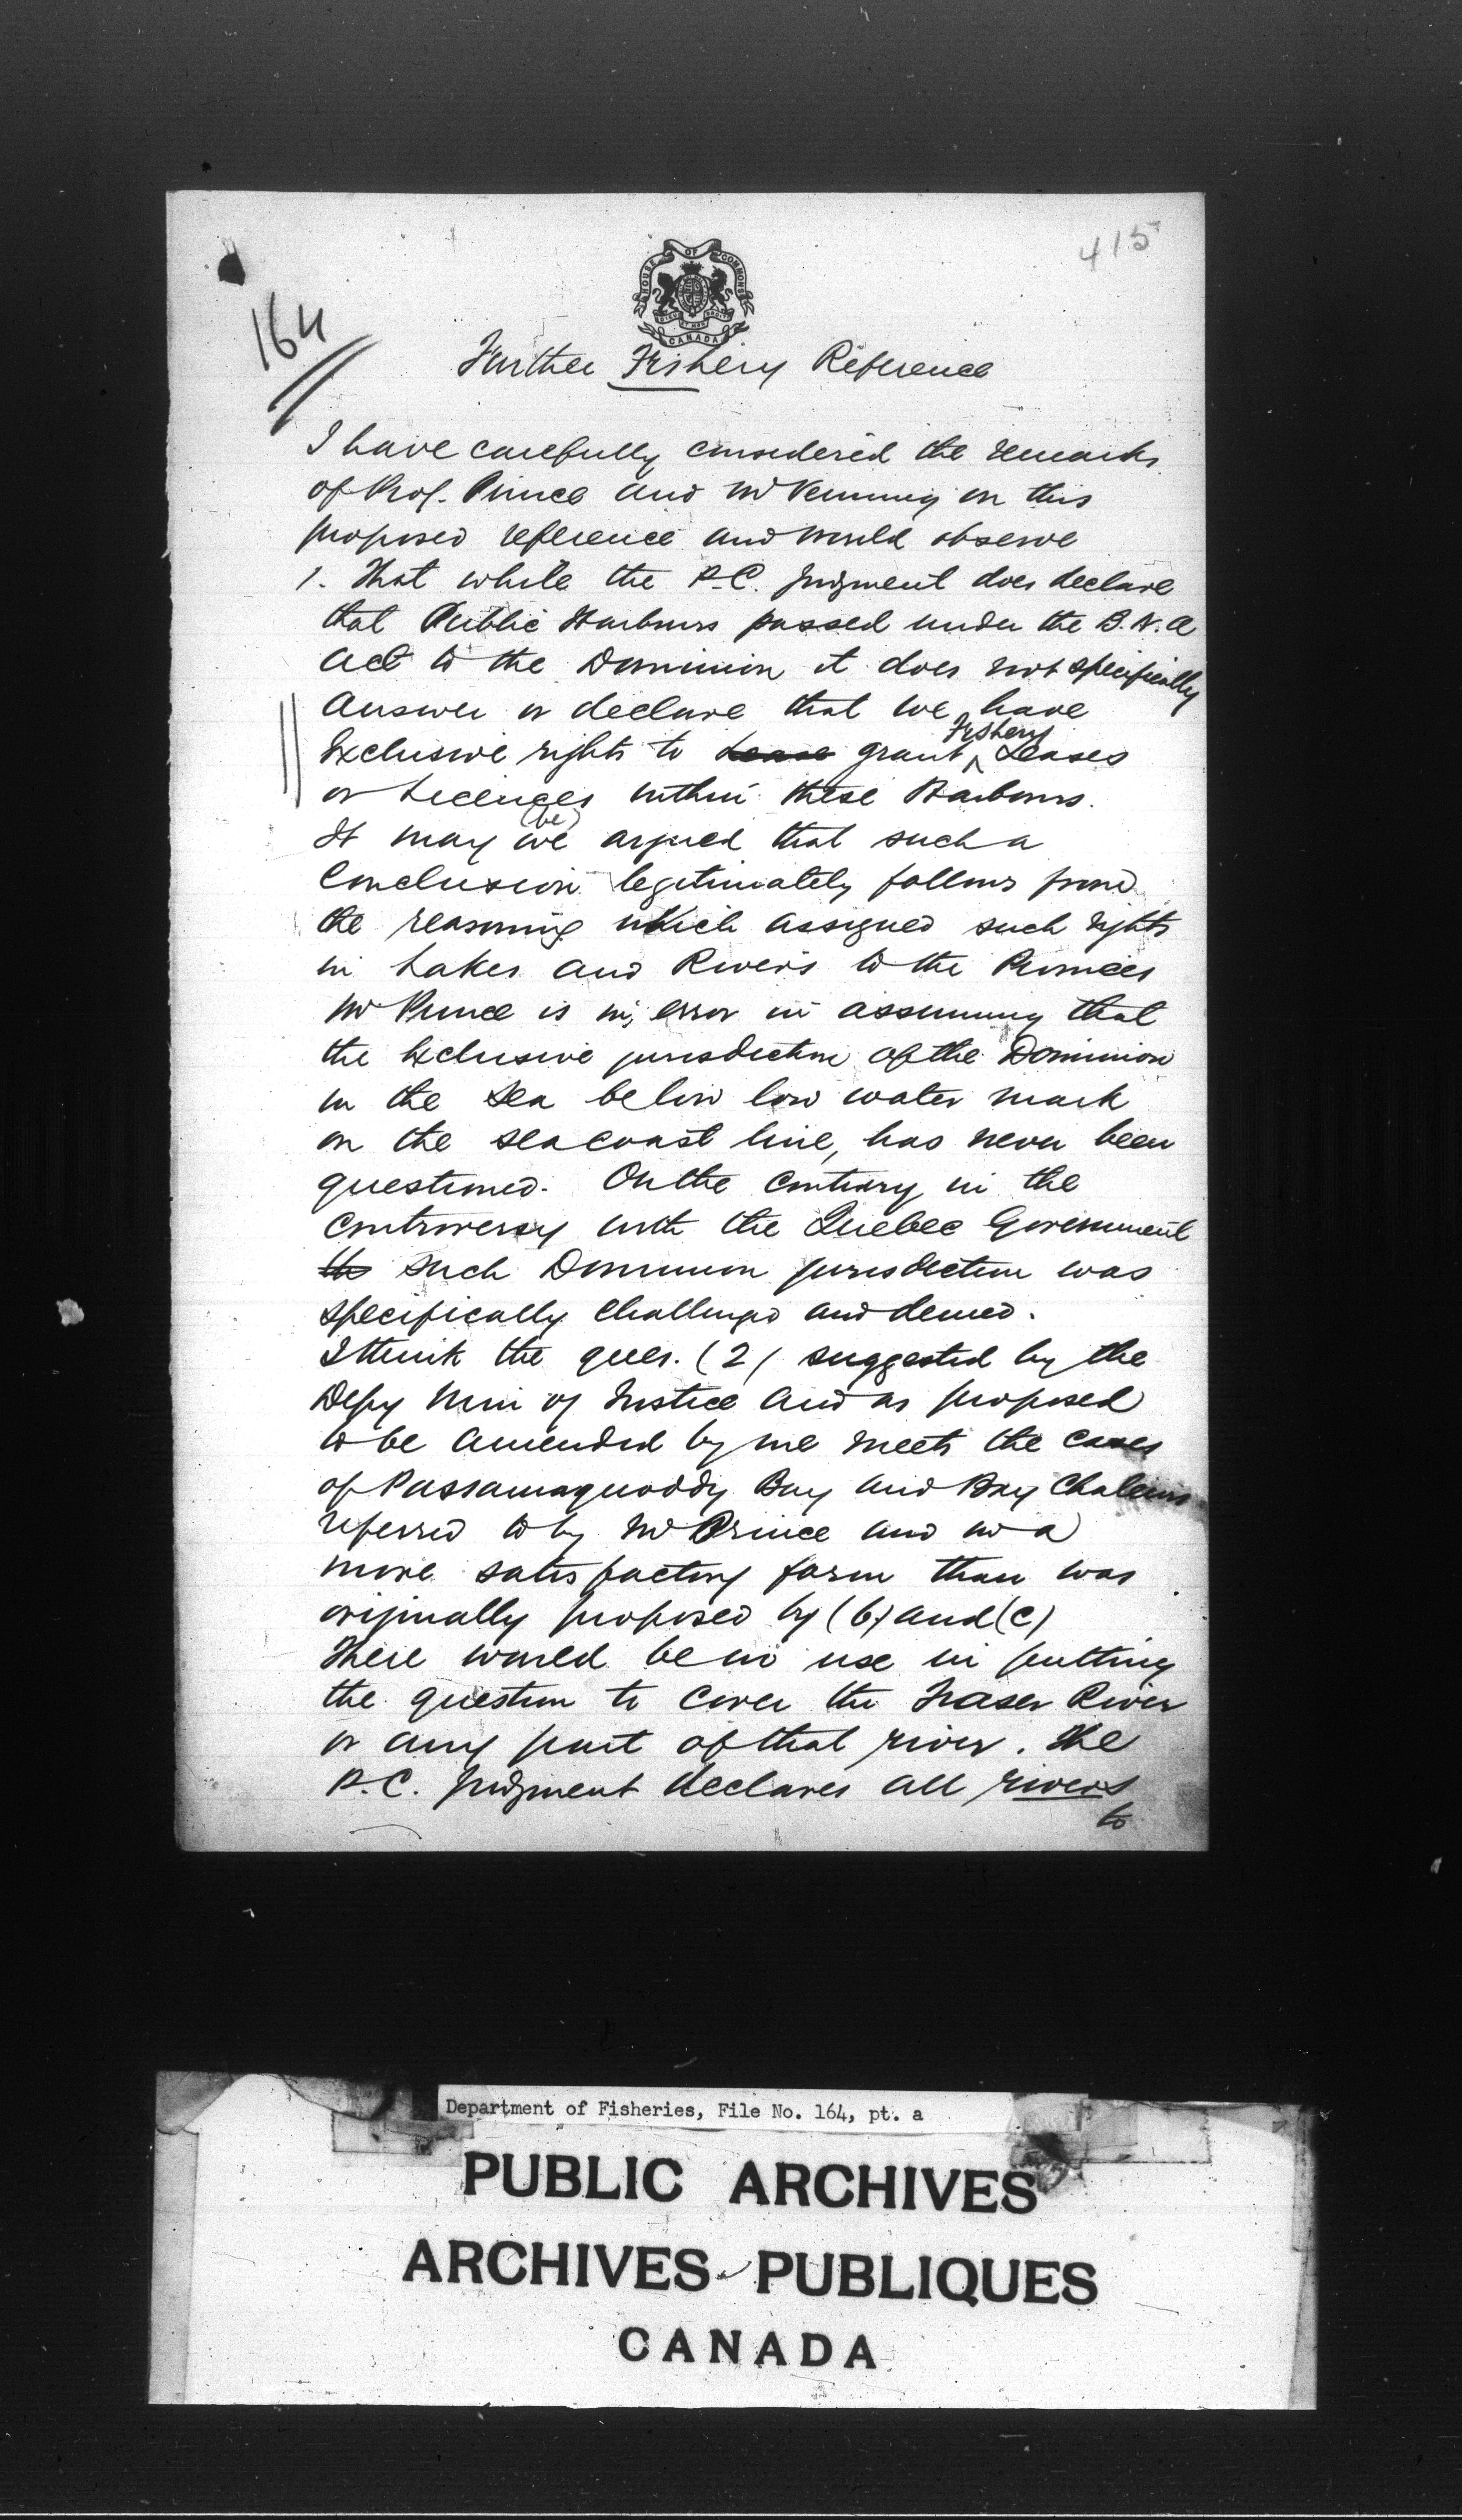 415
HOUSE OF COMMONS
CANADA
164
Further Fishery Reference
I have carefully considered the remarks
of Prof. Prince and Mr Venning on this
proposed reference and would observe
1. That while the P.C. Judgment does declare
that Public Harbours passed under the B.N.A
Act to the Dominion it does not specifically
answer or declare that we have
exclusive rights to Lease grant Fishery Leases
or Licenses within these Harbours.
It may we (be) argued that such a
Conclusion legitimately follows from
the reasoning which assigned such rights
in Lakes and Rivers to the Provinces
Mr Prince is in error in assuming that
the exclusive jurisdiction of the Dominion
in the Sea below low water mark
on the seacoast line, has never been
questioned. On the contrary in the
controversy with the Quebec Government
the such Dominion jurisdiction was
specifically challenged and denied.
I think the ques. (2) suggested by the
Depy Min of Justice and as proposed
to be amended by me meets the cases
of Passamaquoddy Bay and Bay Chaleurs
referred to by Mr Prince and in a
more satisfactory form than was
originally proposed by (b) and (c)
There would be no use in putting
the question to cover the Fraser River
or any part of that river. The
P.C. Judgment declares all rivers
to
Department of Fisheries, File No. 164, pt. a
PUBLIC ARCHIVES
ARCHIVES PUBLIQUES
CANADA